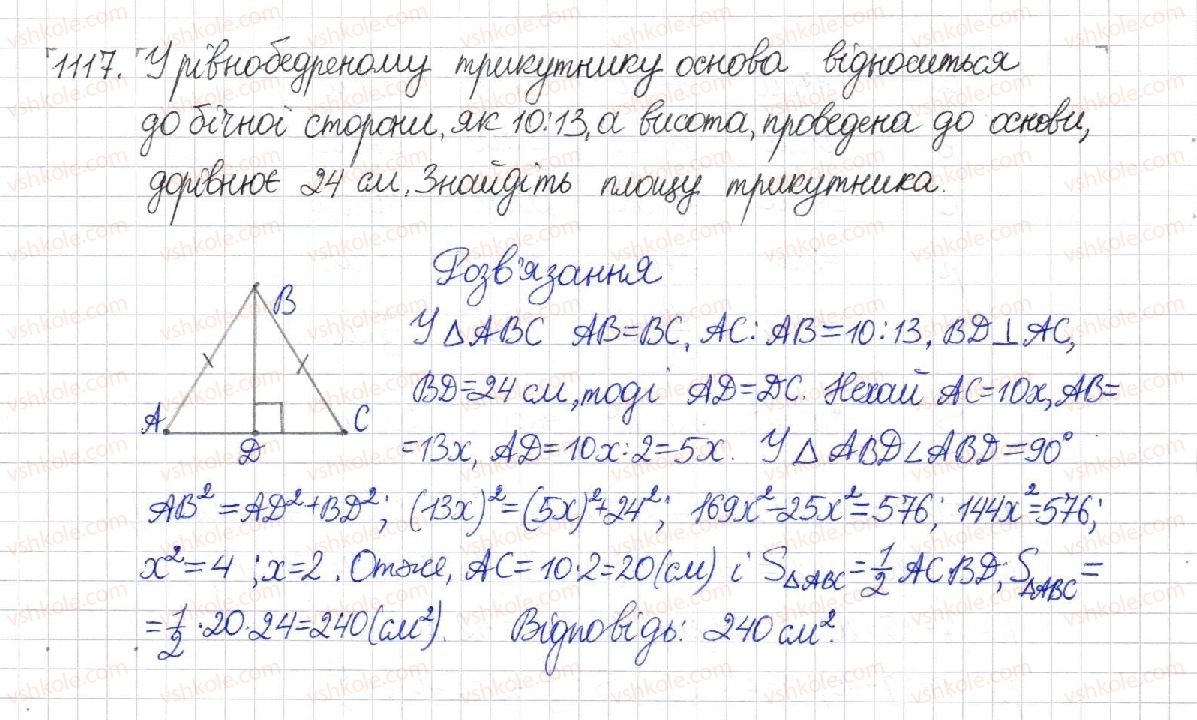 1117. У рівнобедреному трикутнику основа відноситься
до бічної сторони, як 10:13, а висота, проведена до основи,
дорівнює 24 см. Знайдіть площу трикутника.
Розв'язання
B
A
D
C
У △ABC AB=BC, AC:AB=10:13, BD⊥AC,
BD=24 см, тоді AD=DC. Нехай AC=10x, AB=
=13x, AD=10x:2=5x. У △ABD ∠ABD=90°
AB²=AD²+BD²; (13x)²=(5x)²+24²; 169x²-25x²=576; 144x²=576;
x²=4; x=2. Отже, AC=10·2=20(см) і S△ABC=1/2 AC BD; S△ABC=
=1/2·20·24=240(см²). Відповідь: 240 см².